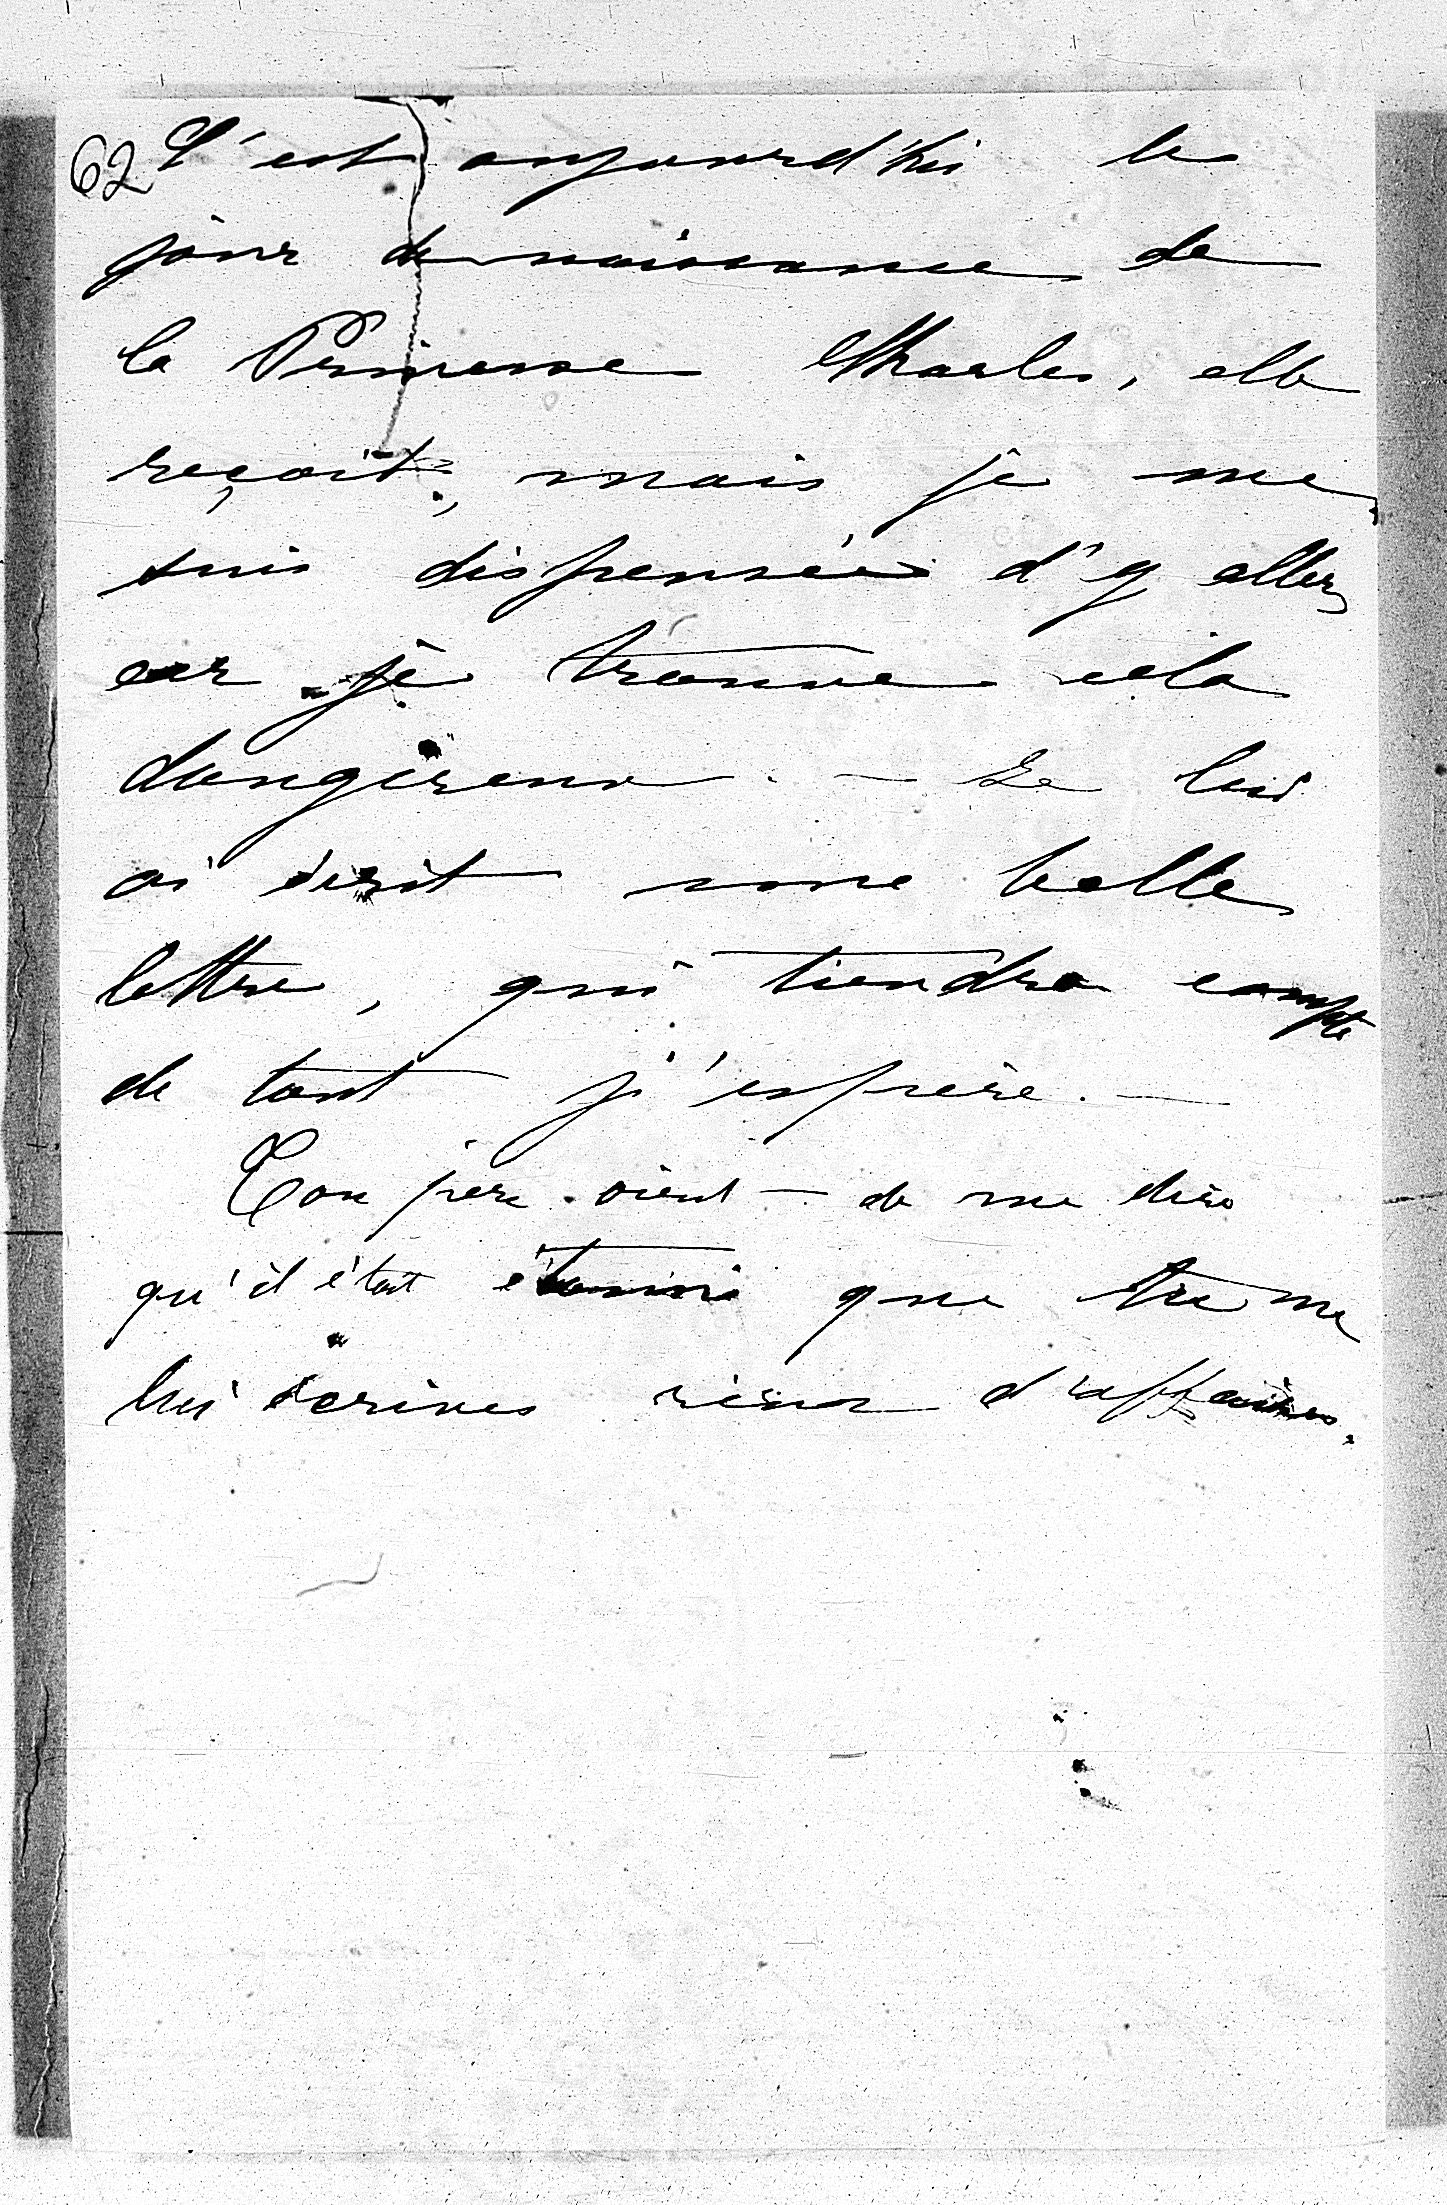 62 C'est aujourd'hui le
jour de naissance de
la Princesse Charles, elle
reçoit, mais je me
suis dispensée d'y aller,
car je trouve cela
dangereux. — Je lui
ai écrit une belle
lettre, qui tiendra compte
de tout j'espère. —
Ton père vient de me dire
qu'il était étonné que tu ne
lui écrives rien d'affaires.